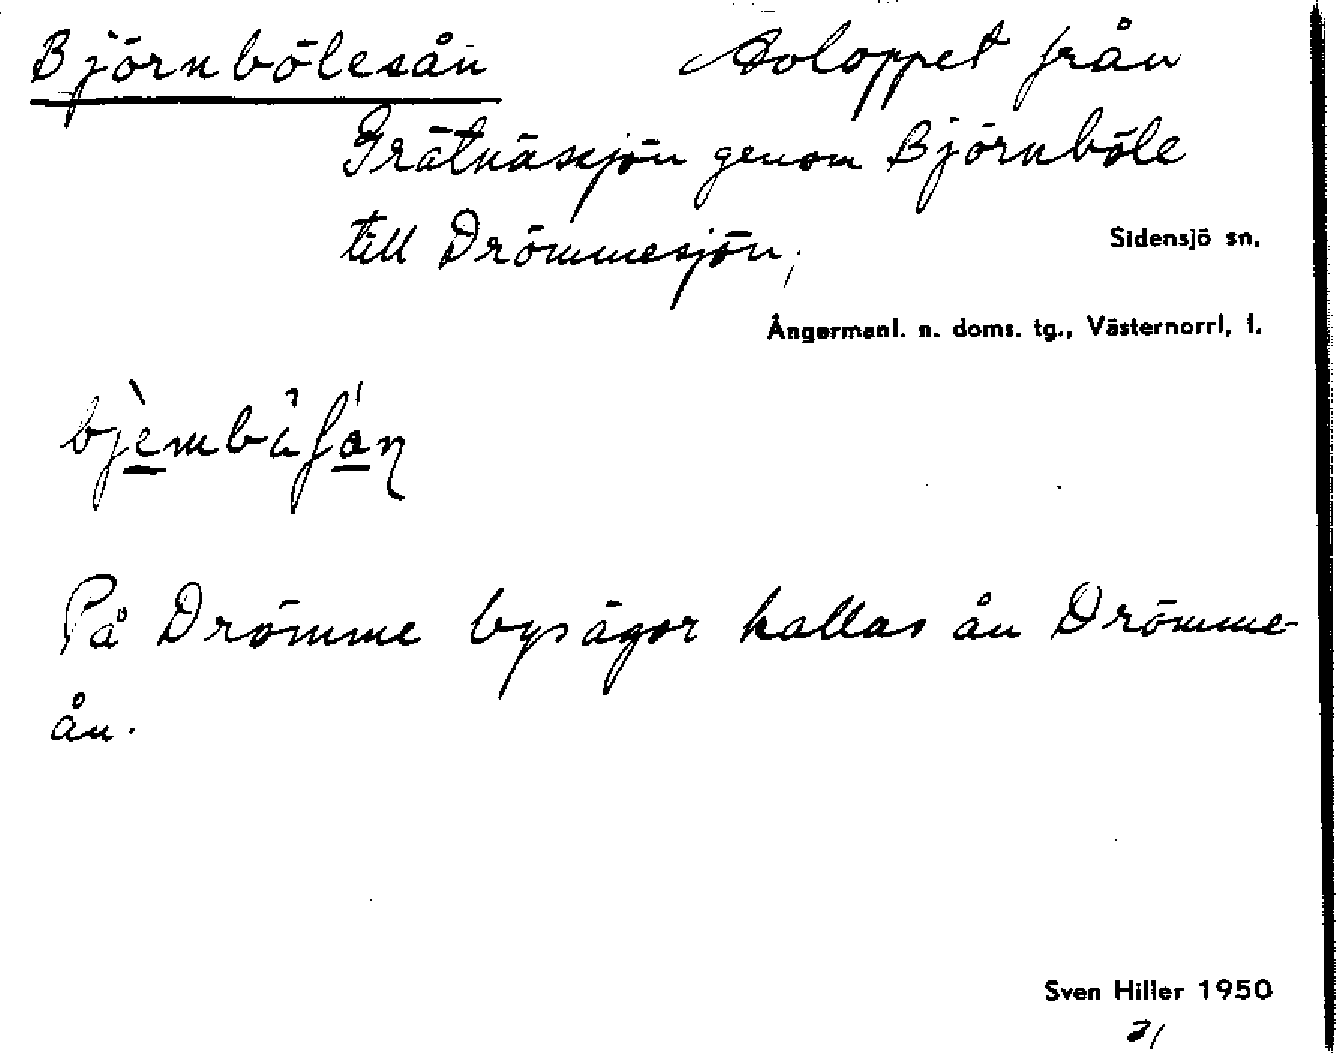 Björnbölesån Avloppet från
Grätnäsjön genom Björnböle
till Drömmesjön,
Sidensjö sn.
Ångermanl. n. doms. tg., Västernorrl. l.
På Drömme bys ägor kallas ån Drömme-
ån.
Sven Hiller 1950